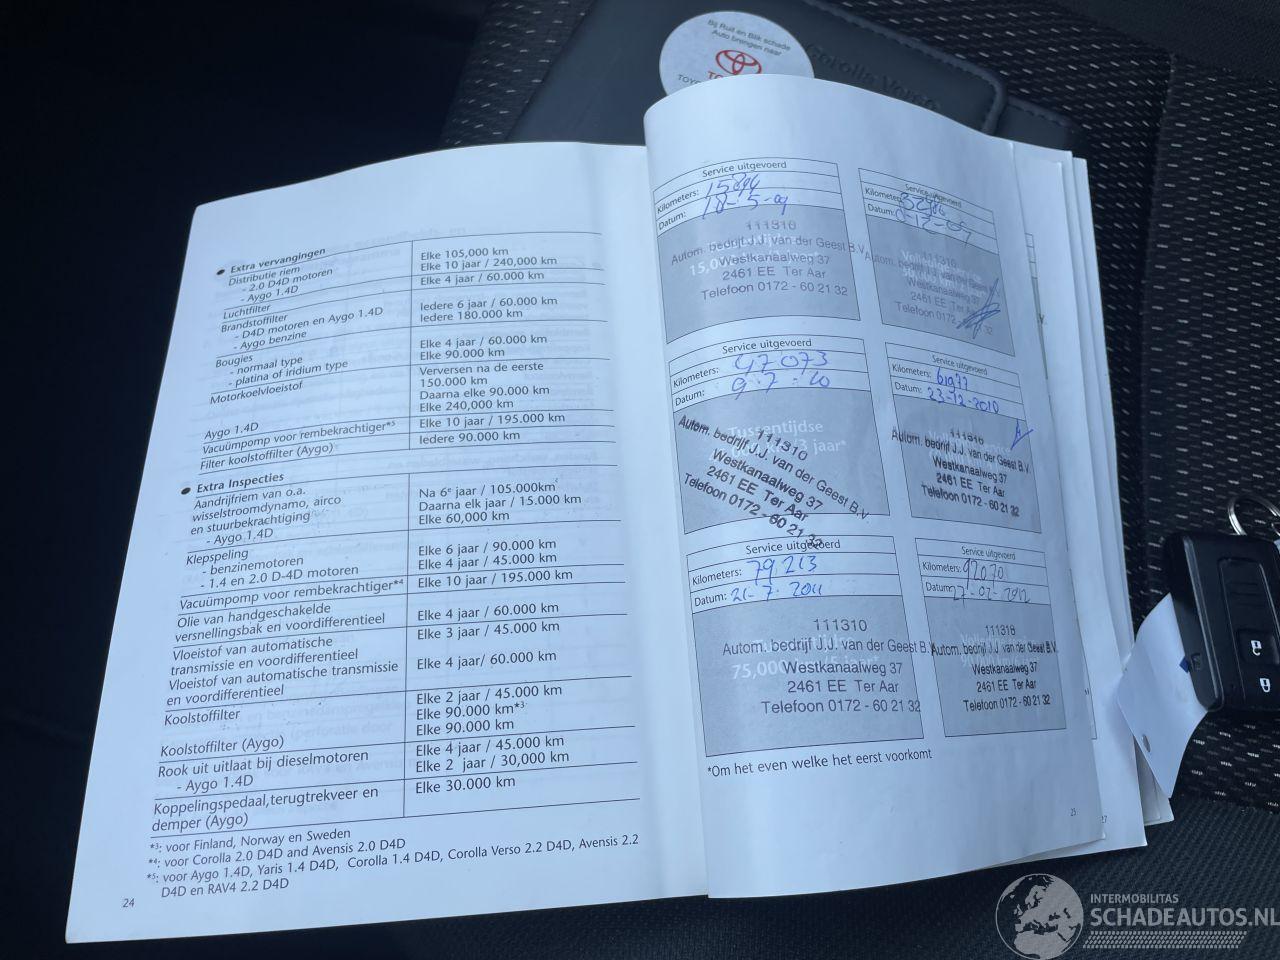 Bij Ruit en Blik schade
Auto brengen naar
Corolla Verso
● Extra vervangingen
Distributie riem
- 2.0 D4D motoren
Elke 105,000 km
- Aygo 1.4D
Elke 10 jaar / 240,000 km
Luchtfilter
Elke 4 jaar / 60.000 km
Brandstoffilter
- D4D motoren en Aygo 1.4D
Iedere 6 jaar / 60.000 km
- Aygo benzine
Iedere 180.000 km
Bougies
- normaal type
Elke 4 jaar / 60.000 km
- platina of iridium type
Elke 90.000 km
Motorkoelvloeistof
Verversen na de eerste
150.000 km
Daarna elke 90.000 km
Aygo 1.4D
Elke 240,000 km
Vacuümpomp voor rembekrachtiger*5
Elke 10 jaar / 195.000 km
Filter koolstoffilter (Aygo)
Iedere 90.000 km
● Extra Inspecties
Aandrijfriem van o.a.
wisselstroomdynamo, airco
en stuurbekrachtiging
- Aygo 1.4D
Na 6e jaar / 105.000km
Daarna elk jaar / 15.000 km
Elke 60,000 km
Klepspeling
- benzinemotoren
Elke 6 jaar / 90.000 km
- 1.4 en 2.0 D-4D motoren
Elke 4 jaar / 45.000 km
Vacuümpomp voor rembekrachtiger*4
Elke 10 jaar / 195.000 km
Olie van handgeschakelde
versnellingsbak en voordifferentieel
Elke 4 jaar / 60.000 km
Vloeistof van automatische
transmissie en voordifferentieel
Elke 3 jaar / 45.000 km
Vloeistof van automatische transmissie
en voordifferentieel
Elke 4 jaar/ 60.000 km
Koolstoffilter
Elke 2 jaar / 45.000 km
Elke 90.000 km*3
Koolstoffilter (Aygo)
Elke 90.000 km
Rook uit uitlaat bij dieselmotoren
Elke 4 jaar / 45.000 km
- Aygo 1.4D
Elke 2 jaar / 30,000 km
Koppelingspedaal,terugtrekveer en
demper (Aygo)
Elke 30.000 km
*3: voor Finland, Norway en Sweden
*4: voor Corolla 2.0 D4D and Avensis 2.0 D4D
*5: voor Aygo 1.4D, Yaris 1.4 D4D, Corolla 1.4 D4D, Corolla Verso 2.2 D4D, Avensis 2.2
D4D en RAV4 2.2 D4D
24
Service uitgevoerd
Kilometers:
Datum: 18-5-09
111310
Autom. bedrijf J.J. van der Geest B.V.
Westkanaalweg 37
2461 EE Ter Aar
Telefoon 0172 - 60 21 32
Service uitgevoerd
Kilometers:
Datum:
111310
Autom. bedrijf J.J. van der Geest
Westkanaalweg 37
2461 EE Ter Aar
Telefoon 0172 - 60 21 32
Service uitgevoerd
Kilometers: 47073
Datum: 9-7-10
Tussentijdse
111310
Autom. bedrijf J.J. van der Geest B.V.
Westkanaalweg 37
2461 EE Ter Aar
Telefoon 0172 - 60 21 32
Service uitgevoerd
Kilometers: 61977
Datum: 23-12-2010
111310
Autom. bedrijf J.J. van der Geest B.V.
Westkanaalweg 37
2461 EE Ter Aar
Telefoon 0172 - 60 21 32
Service uitgevoerd
Kilometers: 79213
Datum: 21-7-2011
111310
Autom. bedrijf J.J. van der Geest B.V.
75,000
Westkanaalweg 37
2461 EE Ter Aar
Telefoon 0172 - 60 21 32
Service uitgevoerd
Kilometers: 92070
Datum: 27-02-2012
111310
Autom. bedrijf J.J. van der Geest B.V.
Westkanaalweg 37
2461 EE Ter Aar
Telefoon 0172 - 60 21 32
*Om het even welke het eerst voorkomt
25
27
INTERMOBILITAS
SCHADEAUTOS.NL